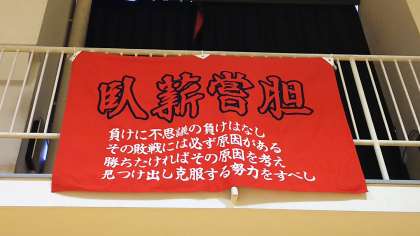 臥薪嘗胆
負けに不思議の負けはなし
その敗戦には必ず原因がある
勝ちたければその原因を考え
見つけ出し克服する努力をすべし